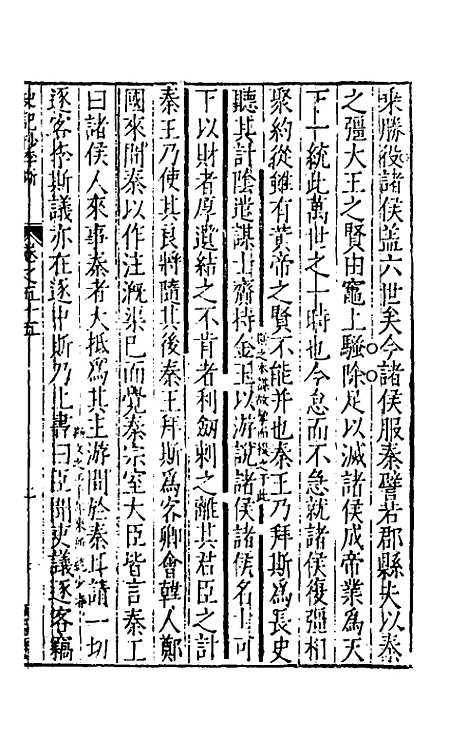 乘勝役諸侯蓋六世矣今諸侯服秦譬若郡縣夫以秦
之彊大王之賢由竈上騷除足以滅諸侯成帝業爲天
下一統此萬世之一時也今怠而不急就諸侯復强相
聚約從雖有黃帝之賢不能并也秦王乃拜斯爲長史
聽其計陰遣謀士齎持金玉以游說諸侯諸侯名士可
下以財者厚遺結之不肯者利劒刺之離其君臣之計
秦王乃使其良將隨其後秦王拜斯爲客卿會韓人鄭
國來間秦以作注漑渠已而覺秦宗室大臣皆言秦王
曰諸侯人來事秦者大抵爲其主游間於秦耳請一切
逐客李斯議亦在逐中斯乃上書曰臣聞吏議逐客竊
史記抄李斯
卷之五十五